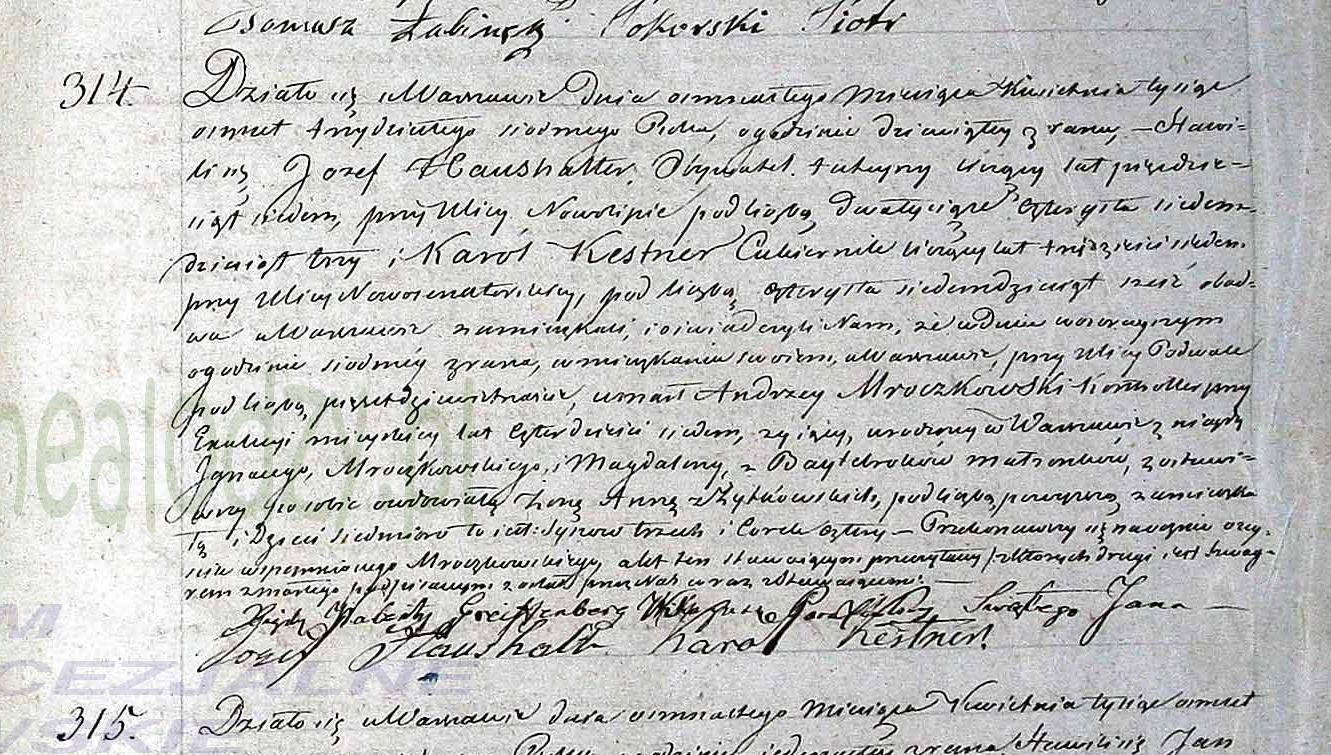 Tomasz Łabinski Sokorski Piotr
314. Działo się w Warszawie dnia osmnastego Miesiąca Kwietnia tysiąc
osmset trzydziestego siodmego Roku, o godzinie dziewiątey z rana, – Stawi-
li się Jozef Haushalter, Obywatel tuteyszy liczący lat pięćdzie-
siąt siedem, przy Ulicy Nowolipie pod liczbą dwatysiące czterysta siedem-
dziesiąt trzy i Karol Kestner Cukiernik liczący lat trzydzieści siedem
przy Ulicy Nowosenatorskiey, pod liczbą czterysta siedemdziesiąt sześć obad-
wa w Warszawie zamieszkali, i oświadczyli Nam, że w dniu wczorayszym
o godzinie siodméy z rana, w mieszkaniu swoiem, w Warszawie, przy Ulicy Podwale
pod liczbą pięćset dziewiętnaście, umarł Andrzey Mroczkowski Kontroller przy
Exekucyi mieyskiey lat czterdzieści siedem, żyiący, urodzony w Warszawie z niegdy
Ignacego, Mroczkowskiego, i Magdaleny, z małżonków, zostawi-
wszy po sobie owdowiałą żonę Annę z pod liczbą powyższą zamieszka
łą i Dzieci siedmioro to iest: Synow trzech i Corek cztery – Przekonawszy się naocznie o zey-
ściu wspomnionego Mroczkowskiego, akt ten stawaiącym przeczytany z których drugi iest szwag-
rem zmarłego podpisanym został przez Nas wraz z Stawaiącemi. –
Xiądz Greiffenberg Świętego Jana –
Jozef Haushalt Karol Kestner.
315. Działo się w Warszawie dnia osmnastego Miesiąca Kwietnia tysiąc osmset
Roku o godzinie z rana Stawili się Jan
nealodzy.pl
M
CEZJALNE
WSKIE